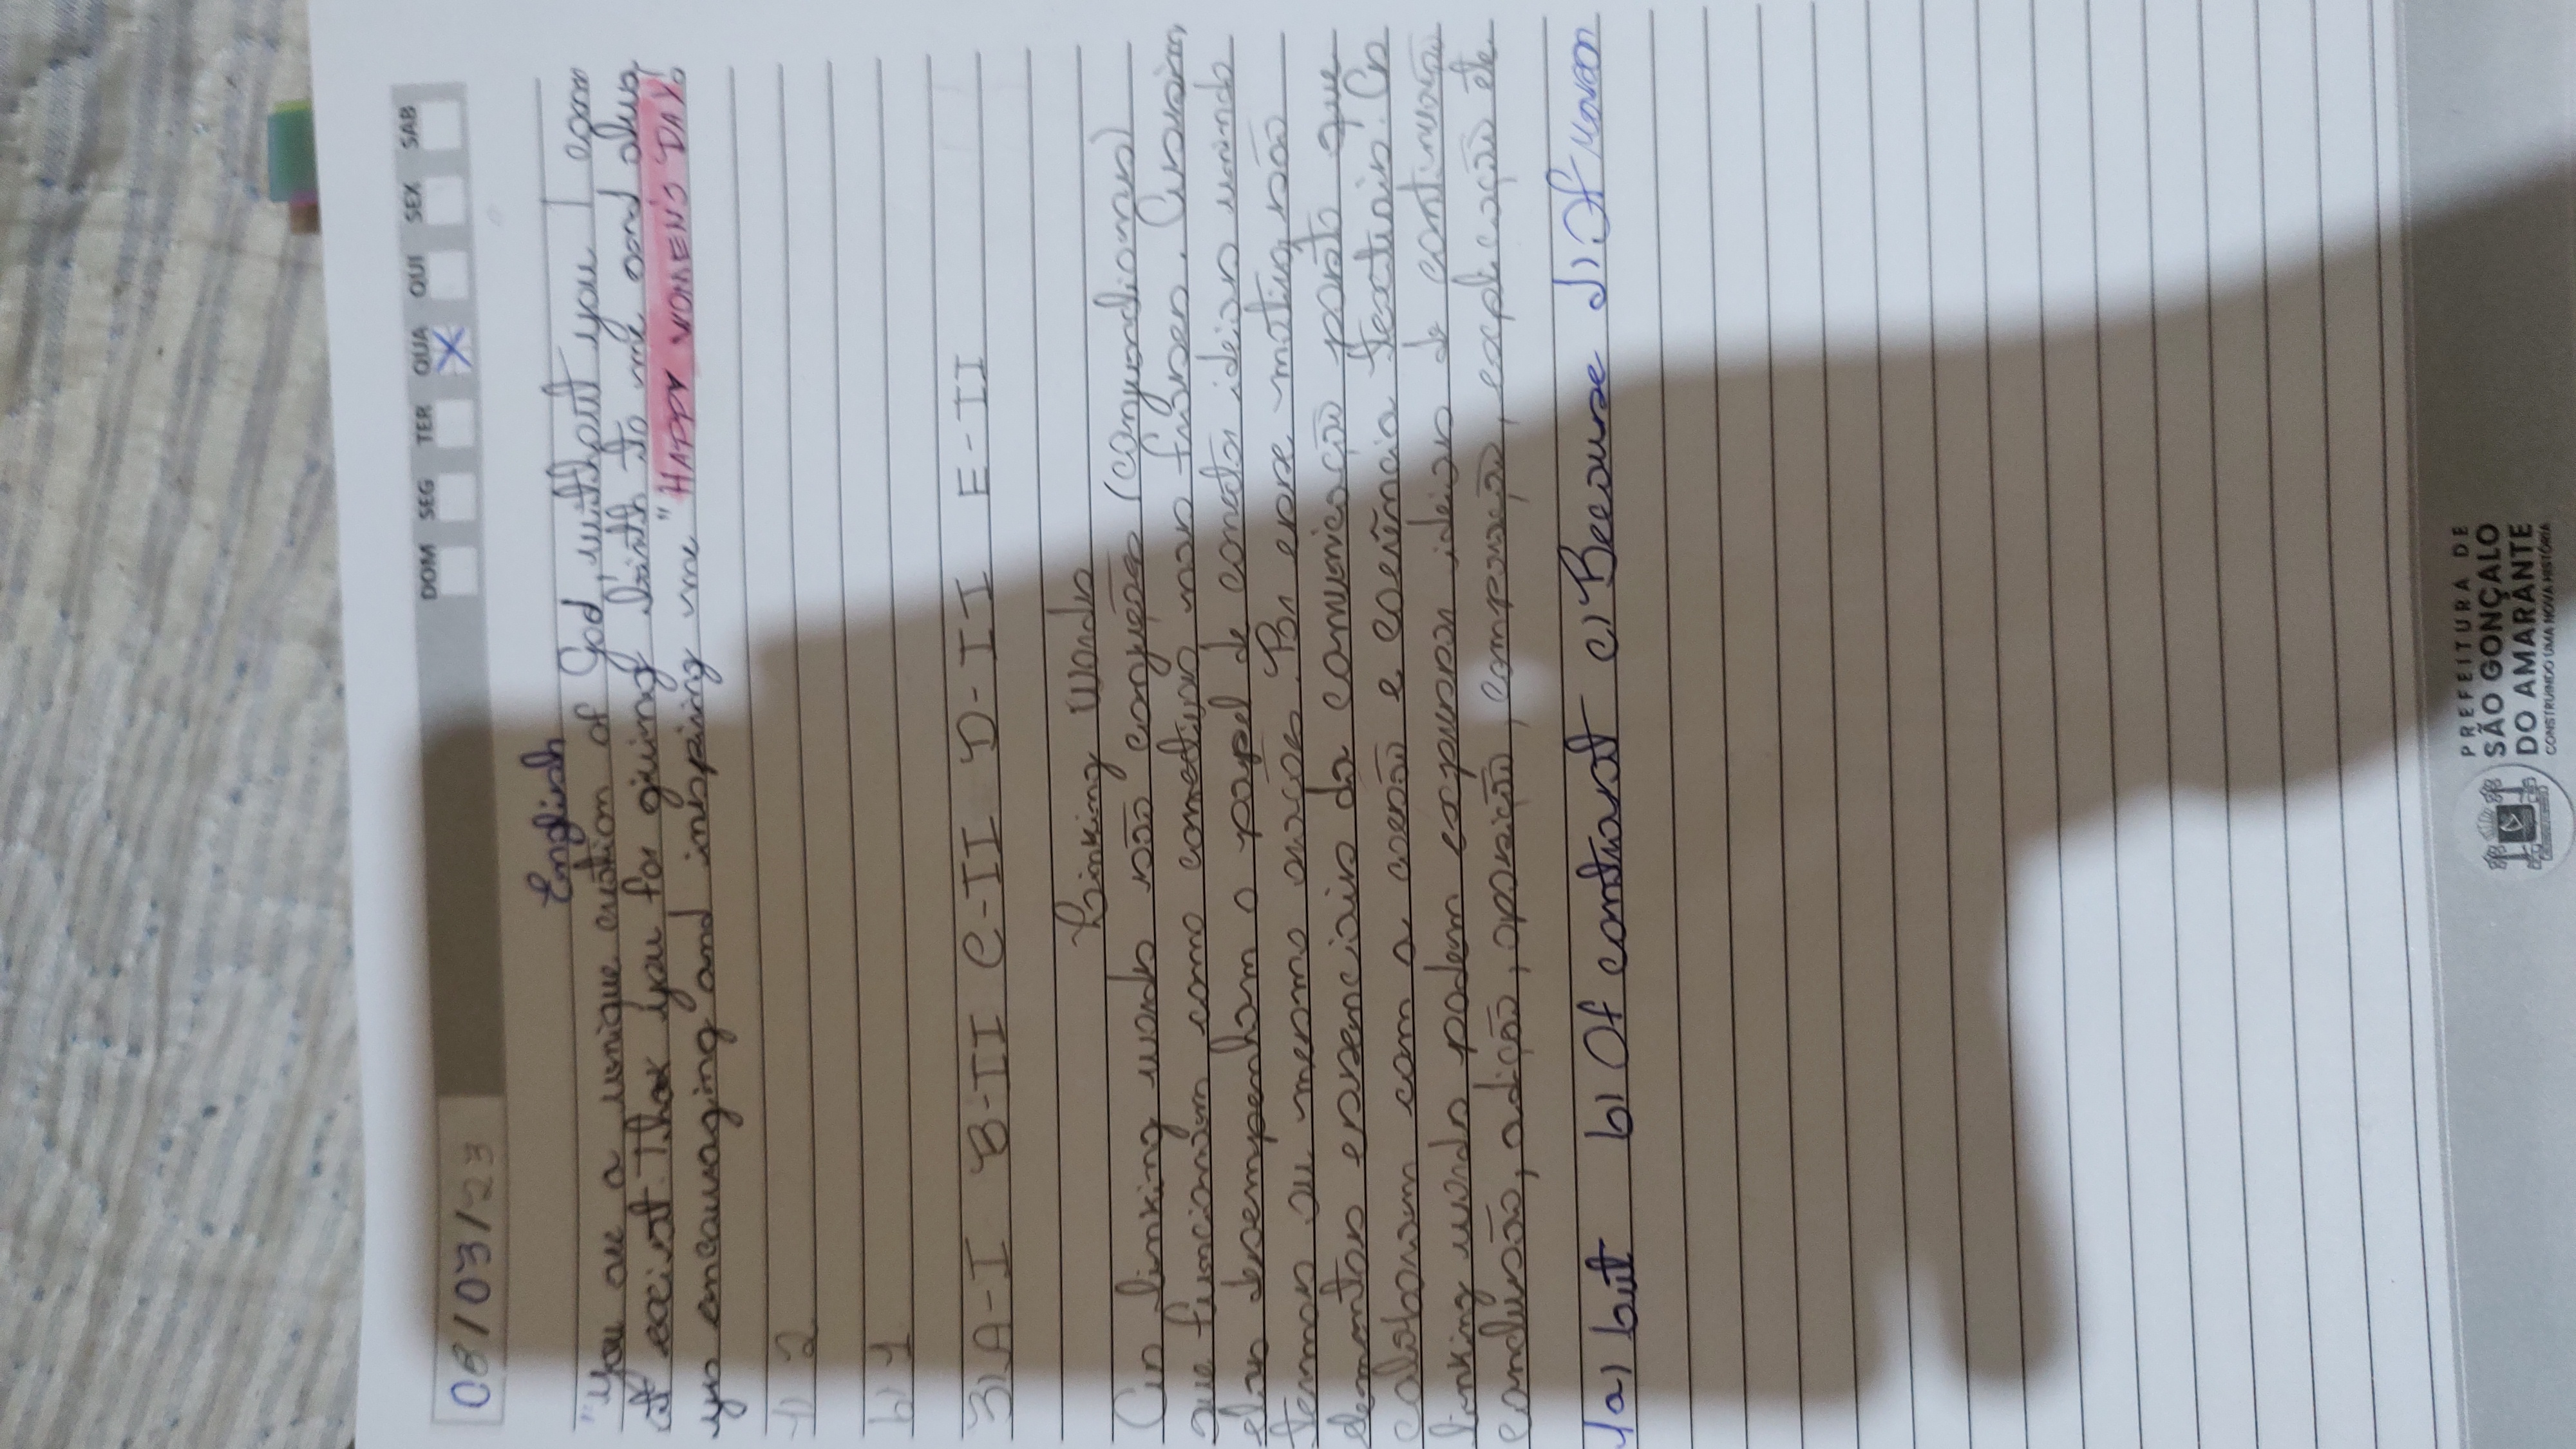 DOM SEG TER QUA QUI SEX SAB
08/03/23 X
English
"You are a unique creation of God, without you I
exist. you for giving birth to me and alwa
ys encouraging and inspiring me "HAPPY WOMEN'S DAY!
1) 2
b) 1
3) A-I B-II C-II D-II E-II
Linking Words
As linking words são
que funcionam como conectivos nas frases. Assim,
elas desempenham o papel de conectar ideias unindo
termos ou mesmo orações. Por esse motivo, são
elementos essenciais da comunicação posto que
colaboram com a coesão e coerência textuais. As
linking words podem expressar ideias de continuação
conclusão, adição, oposição, comparação, explicação etc
1a) but b) Of contrast c) Because d) Of reason
PREFEITURA DE
SÃO GONÇALO
DO AMARANTE
CONSTRUINDO UMA NOVA HISTÓRIA